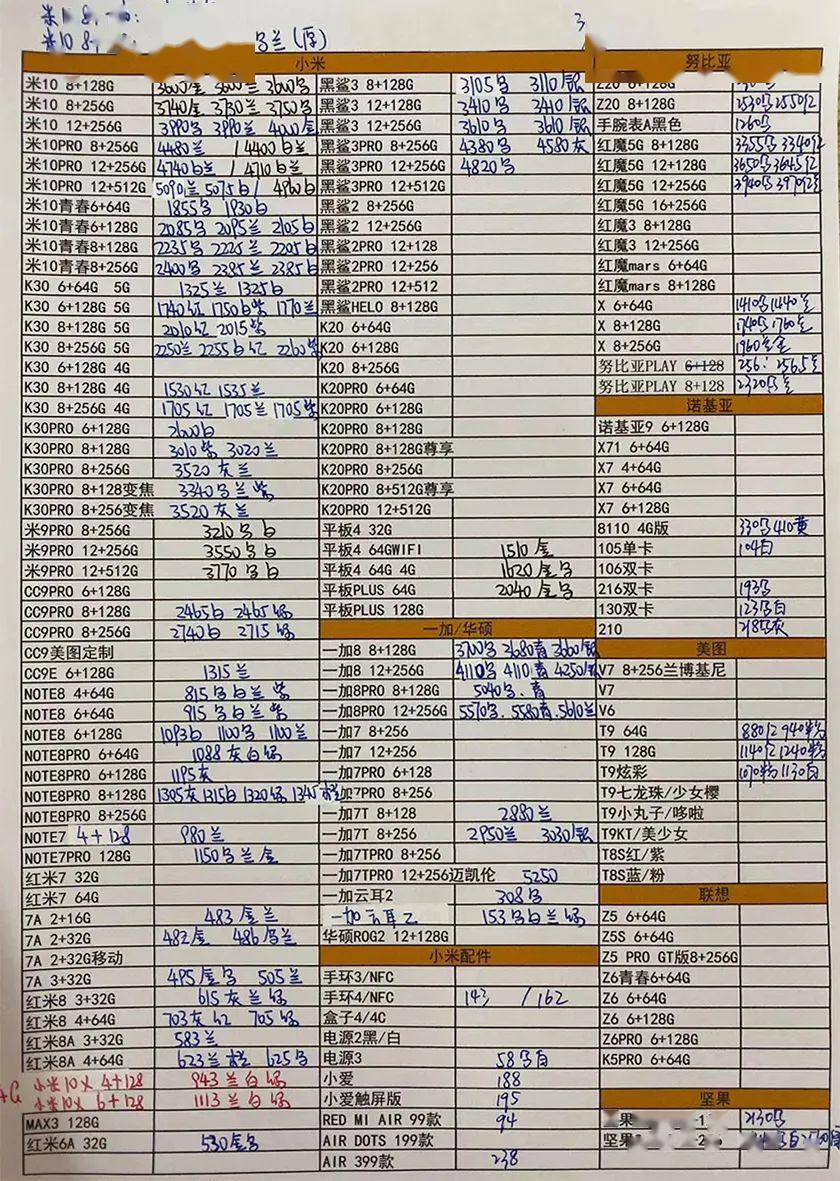 米10 8
米10 8
乌兰(厚)
3
小米
米10 8+128G 3600金 3600兰 3600乌
米10 8+256G 3740金 3730兰 3750乌
米10 12+256G 3990乌 3990兰 4000金
米10PRO 8+256G 4480兰 /4400白兰
米10PRO 12+256G 4740白兰 /4710白兰
米10PRO 12+512G 5090兰 5075白/ 4960白
米10青春6+64G 1855乌 1930白
米10青春6+128G 2085乌 2095兰 2105白
米10青春8+128G 2235乌 2225兰 2205白
米10青春8+256G 2400乌 2385兰 2385白
K30 6+64G 5G 1325兰 1325白
K30 6+128G 5G 1740红 1750白紫 1770兰
K30 8+128G 5G 2010红 2015紫
K30 8+256G 5G 2250兰 2255白红 2260紫
K30 6+128G 4G
K30 8+128G 4G 1530红 1535兰
K30 8+256G 4G 1705红 1705兰 1705紫
K30PRO 6+128G 2600白
K30PRO 8+128G 3010紫 3020兰
K30PRO 8+256G 3520灰兰
K30PRO 8+128变焦 3340乌兰紫
K30PRO 8+256变焦 3520灰兰
米9PRO 8+256G 3210乌白
米9PRO 12+256G 3550乌白
米9PRO 12+512G 3770乌白
CC9PRO 6+128G
CC9PRO 8+128G 2465白 2465绿
CC9PRO 8+256G 2740白 2715绿
CC9美图定制
CC9E 6+128G 1315兰
NOTE8 4+64G 815乌白兰紫
NOTE8 6+64G 915乌白兰紫
NOTE8 6+128G 1093白 1100乌 1100兰
NOTE8PRO 6+64G 1088灰白绿
NOTE8PRO 6+128G 1195灰
NOTE8PRO 8+128G 1305灰 1315白 1320绿 1345橙
NOTE8PRO 8+256G
NOTE7 4+128 980兰
NOTE7PRO 128G 1150乌兰金
红米7 32G
红米7 64G
7A 2+16G 483金兰
7A 2+32G 482金 486乌兰
7A 2+32G移动
7A 3+32G 495金乌 505兰
红米8 3+32G 615灰兰绿
红米8 4+64G 703灰红 705绿
红米8A 3+32G 583兰
红米8A 4+64G 623兰橙 625乌
4G 小米10X 4+128 943兰白绿
小米10X 6+128 1113兰白绿
MAX3 128G
红米6A 32G 530金乌
黑鲨3 8+128G 3105乌 3110银
黑鲨3 12+128G 3410乌 3410银
黑鲨3 12+256G 3610乌 3610银
黑鲨3PRO 8+256G 4380黑 4580灰
黑鲨3PRO 12+256G 4820乌
黑鲨3PRO 12+512G
黑鲨2 8+256G
黑鲨2 12+256G
黑鲨2PRO 12+128
黑鲨2PRO 12+256
黑鲨2PRO 12+512
黑鲨HELO 8+128G
K20 6+64G
K20 6+128G
K20 8+256G
K20PRO 6+64G
K20PRO 6+128G
K20PRO 8+128G
K20PRO 8+128G尊享
K20PRO 8+256G
K20PRO 8+512G尊享
K20PRO 12+512G
平板4 32G
平板4 64GWIFI 1510金
平板4 64G 4G 1620金乌
平板PLUS 64G 2040金乌
平板PLUS 128G
一加/华硕
一加8 8+128G 3700乌 3680青 3660银
一加8 12+256G 4110乌 4110青 4250银
一加8PRO 8+128G 5040乌.青
一加8PRO 12+256G 5570乌.5580青.5610兰
一加7 8+256
一加7 12+256
一加7PRO 6+128
一加7PRO 8+256
一加7T 8+128 2880兰
一加7T 8+256 2950兰 3030银
一加7TPRO 8+256
一加7TPRO 12+256迈凯伦 5250
一加云耳2 308乌
一加云耳Z 153乌白兰绿
华硕ROG2 12+128G
小米配件
手环3/NFC
手环4/NFC 143 /162
盒子4/4C
电源2黑/白
电源3 58乌白
小爱 188
小爱触屏版 195
RED MI AIR 99款 94
AIR DOTS 199款
AIR 399款 238
努比亚
Z20 8+128G
Z20 8+128G 2530乌2550红
手腕表A黑色 1260乌
红魔5G 8+128G 3355乌 3340红
红魔5G 12+128G 3650乌3645红
红魔5G 12+256G 3940乌3970红
红魔5G 16+256G
红魔3 8+128G
红魔3 12+256G
红魔mars 6+64G
红魔mars 8+128G
X 6+64G 1410乌1440金
X 8+128G 1740乌1760金
X 8+256G 1960兰金
努比亚PLAY 6+128 256:
努比亚PLAY 8+128 2320乌
诺基亚
诺基亚9 6+128G
X71 6+64G
X7 4+64G
X7 6+64G
X7 6+128G
8110 4G版 330乌410黄
105单卡 104白
106双卡
216双卡 193乌
130双卡 123乌白
210 218乌灰
美图
V7 8+256兰博基尼
V7
V6
T9 64G 880红940粉
T9 128G 1140红1240粉
T9炫彩 1070粉1130白
T9七龙珠/少女樱
T9小丸子/哆啦
T9KT/美少女
T8S红/紫
T8S蓝/粉
联想
Z5 6+64G
Z5S 6+64G
Z5 PRO GT版8+256G
Z6青春6+64G
Z6 6+64G
Z6 6+128G
Z6PRO 6+128G
K5PRO 6+64G
坚果
果 2130乌
坚果